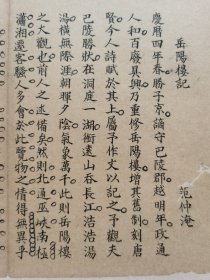 岳陽樓記
范仲淹
慶曆四年春滕子京謫守巴陵郡越明年政通
人和百廢具興乃重修岳陽樓增其舊制刻唐
賢今人詩賦於其上屬予作文以記之予觀夫
巴陵勝狀在洞庭一湖銜遠山吞長江浩浩湯
湯橫無際涯朝暉夕陰氣象萬千此則岳陽樓
之大觀也前人之述備矣然則北通巫峽南極
瀟湘遷客騷人多會於此覽物之情得無異乎